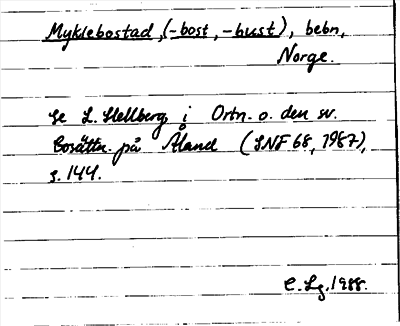 Myklebostad, (-bost, -bust), bebn,
Norge.
Se L. Hellberg i Ortn. o. den sv.
bosättn. på Åland (SNF 68, 1987),
s. 144.
C. Lg. 1988.